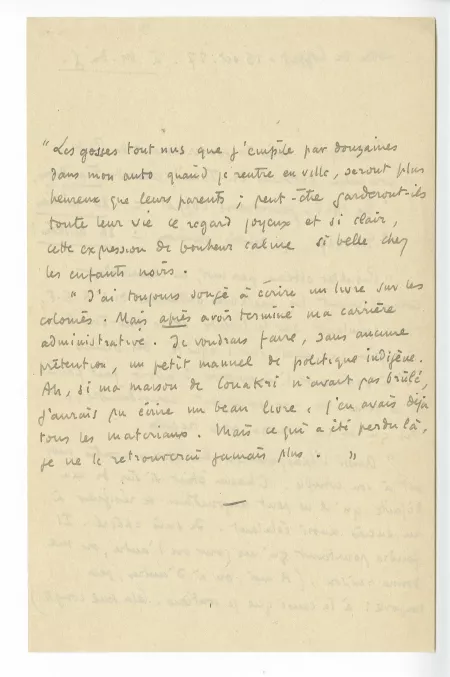 " Les gosses tout nus que j'empile par douzaines
dans mon auto quand je rentre en ville, seront plus
heureux que leurs parents ; peut-être garderont-ils
toute leur vie ce regard joyeux et si clair,
cette expression de bonheur calme si belle chez
les enfants noirs.
" J'ai toujours songé à écrire un livre sur les
colonies. Mais après avoir terminé ma carrière
administrative. Je voudrais faire, sans aucune
prétention, un petit manuel de politique indigène.
Ah, si ma maison de Conakri n'avait pas brûlé,
j'aurais pu écrire un beau livre. J'en avais déjà
tous les matériaux. Mais ce qui a été perdu là,
je ne le retrouverai jamais plus. "